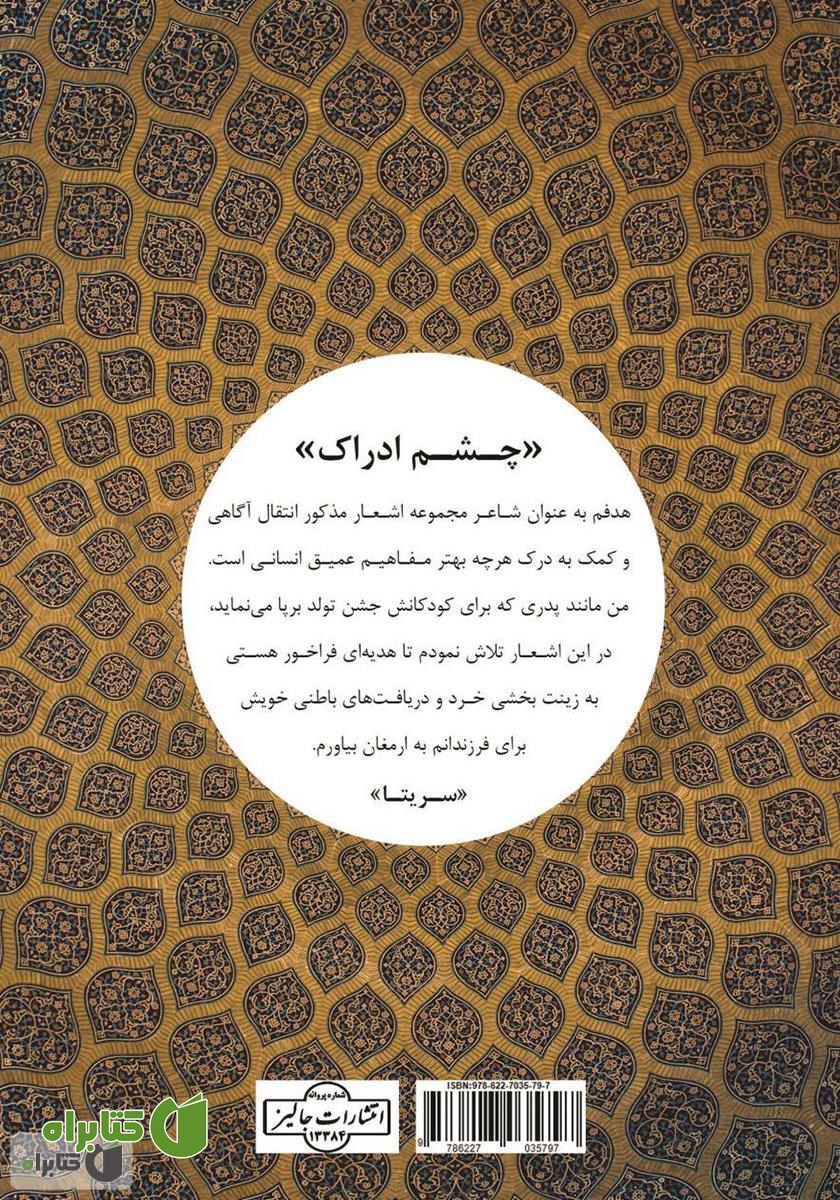 «چشم ادراک»
هدفم به عنوان شاعر مجموعه اشعار مذکور انتقال آگاهی
و کمک به درک هرچه بهتر مفاهیم عمیق انسانی است.
من مانند پدری که برای کودکانش جشن تولد برپا می‌نماید،
در این اشعار تلاش نمودم تا هدیه‌ای فراخور هستی
به زینت بخشی خرد و دریافت‌های باطنی خویش
برای فرزندانم به ارمغان بیاورم.
«سریتا»
شماره پروانه
انتشارات جالیز
۱۳۳۸۴
ISBN:978-622-7035-79-7
9 786227 035797
کتابراه
کتابراه